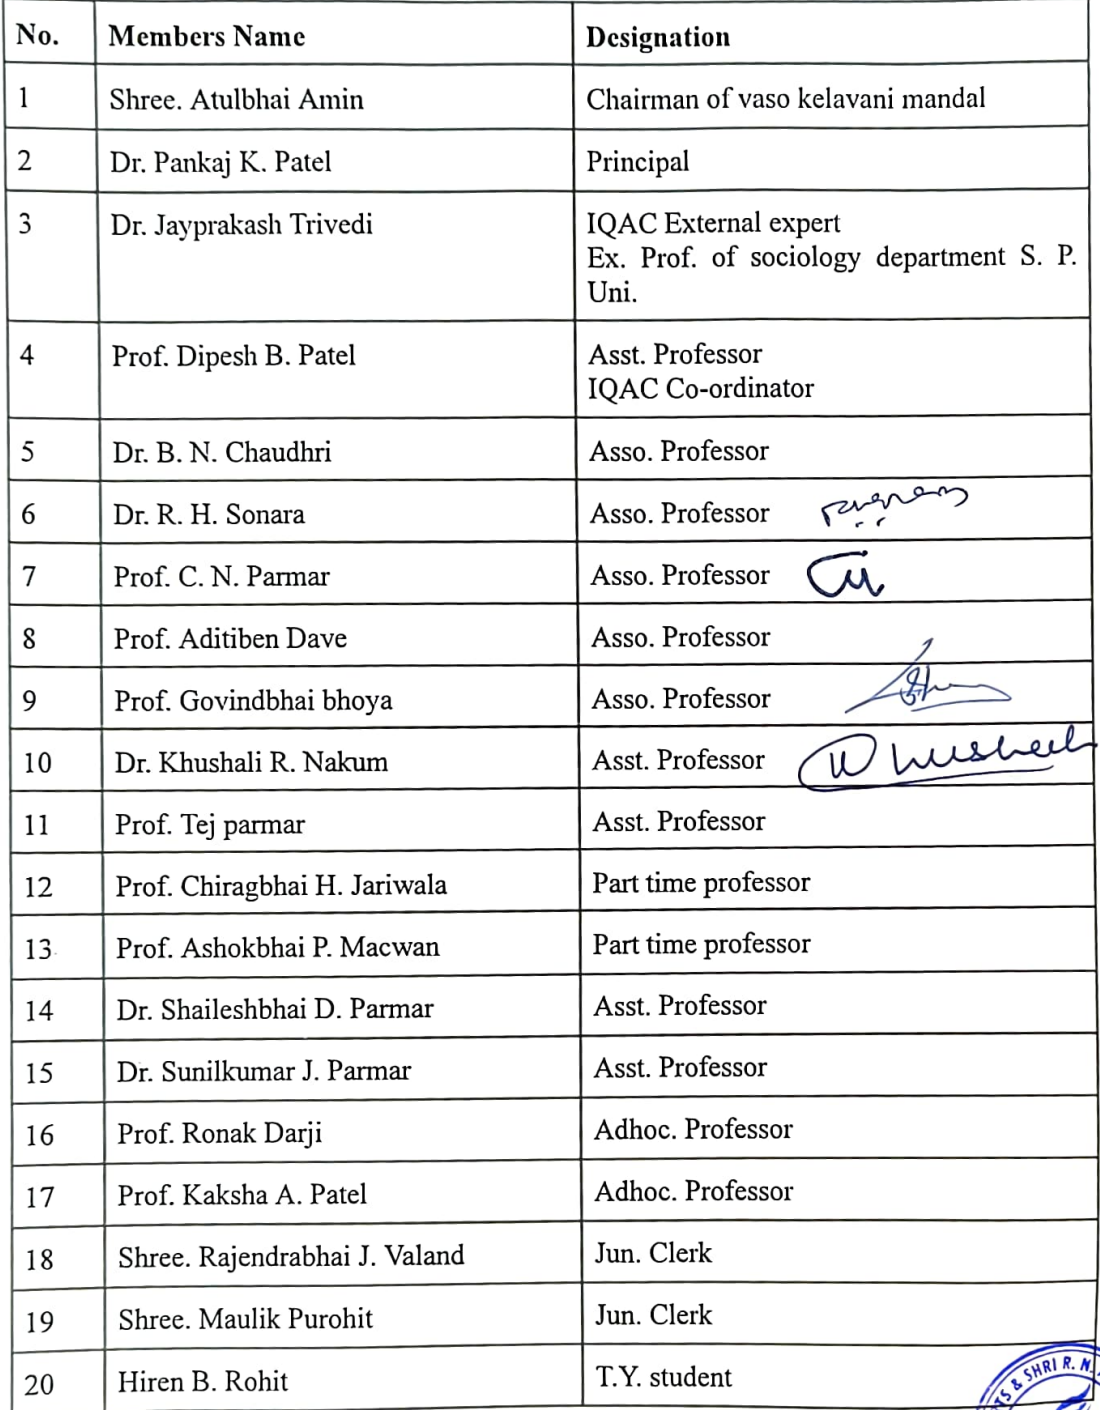 No. Members Name Designation
1 Shree. Atulbhai Amin Chairman of vaso kelavani mandal
2 Dr. Pankaj K. Patel Principal
3 Dr. Jayprakash Trivedi IQAC External expert
Ex. Prof. of sociology department S. P.
Uni.
4 Prof. Dipesh B. Patel Asst. Professor
IQAC Co-ordinator
5 Dr. B. N. Chaudhri Asso. Professor
6 Dr. R. H. Sonara Asso. Professor
7 Prof. C. N. Parmar Asso. Professor
8 Prof. Aditiben Dave Asso. Professor
9 Prof. Govindbhai bhoya Asso. Professor
10 Dr. Khushali R. Nakum Asst. Professor
11 Prof. Tej parmar Asst. Professor
12 Prof. Chiragbhai H. Jariwala Part time professor
13 Prof. Ashokbhai P. Macwan Part time professor
14 Dr. Shaileshbhai D. Parmar Asst. Professor
15 Dr. Sunilkumar J. Parmar Asst. Professor
16 Prof. Ronak Darji Adhoc. Professor
17 Prof. Kaksha A. Patel Adhoc. Professor
18 Shree. Rajendrabhai J. Valand Jun. Clerk
19 Shree. Maulik Purohit Jun. Clerk
20 Hiren B. Rohit T.Y. student
& SHRI R. N.